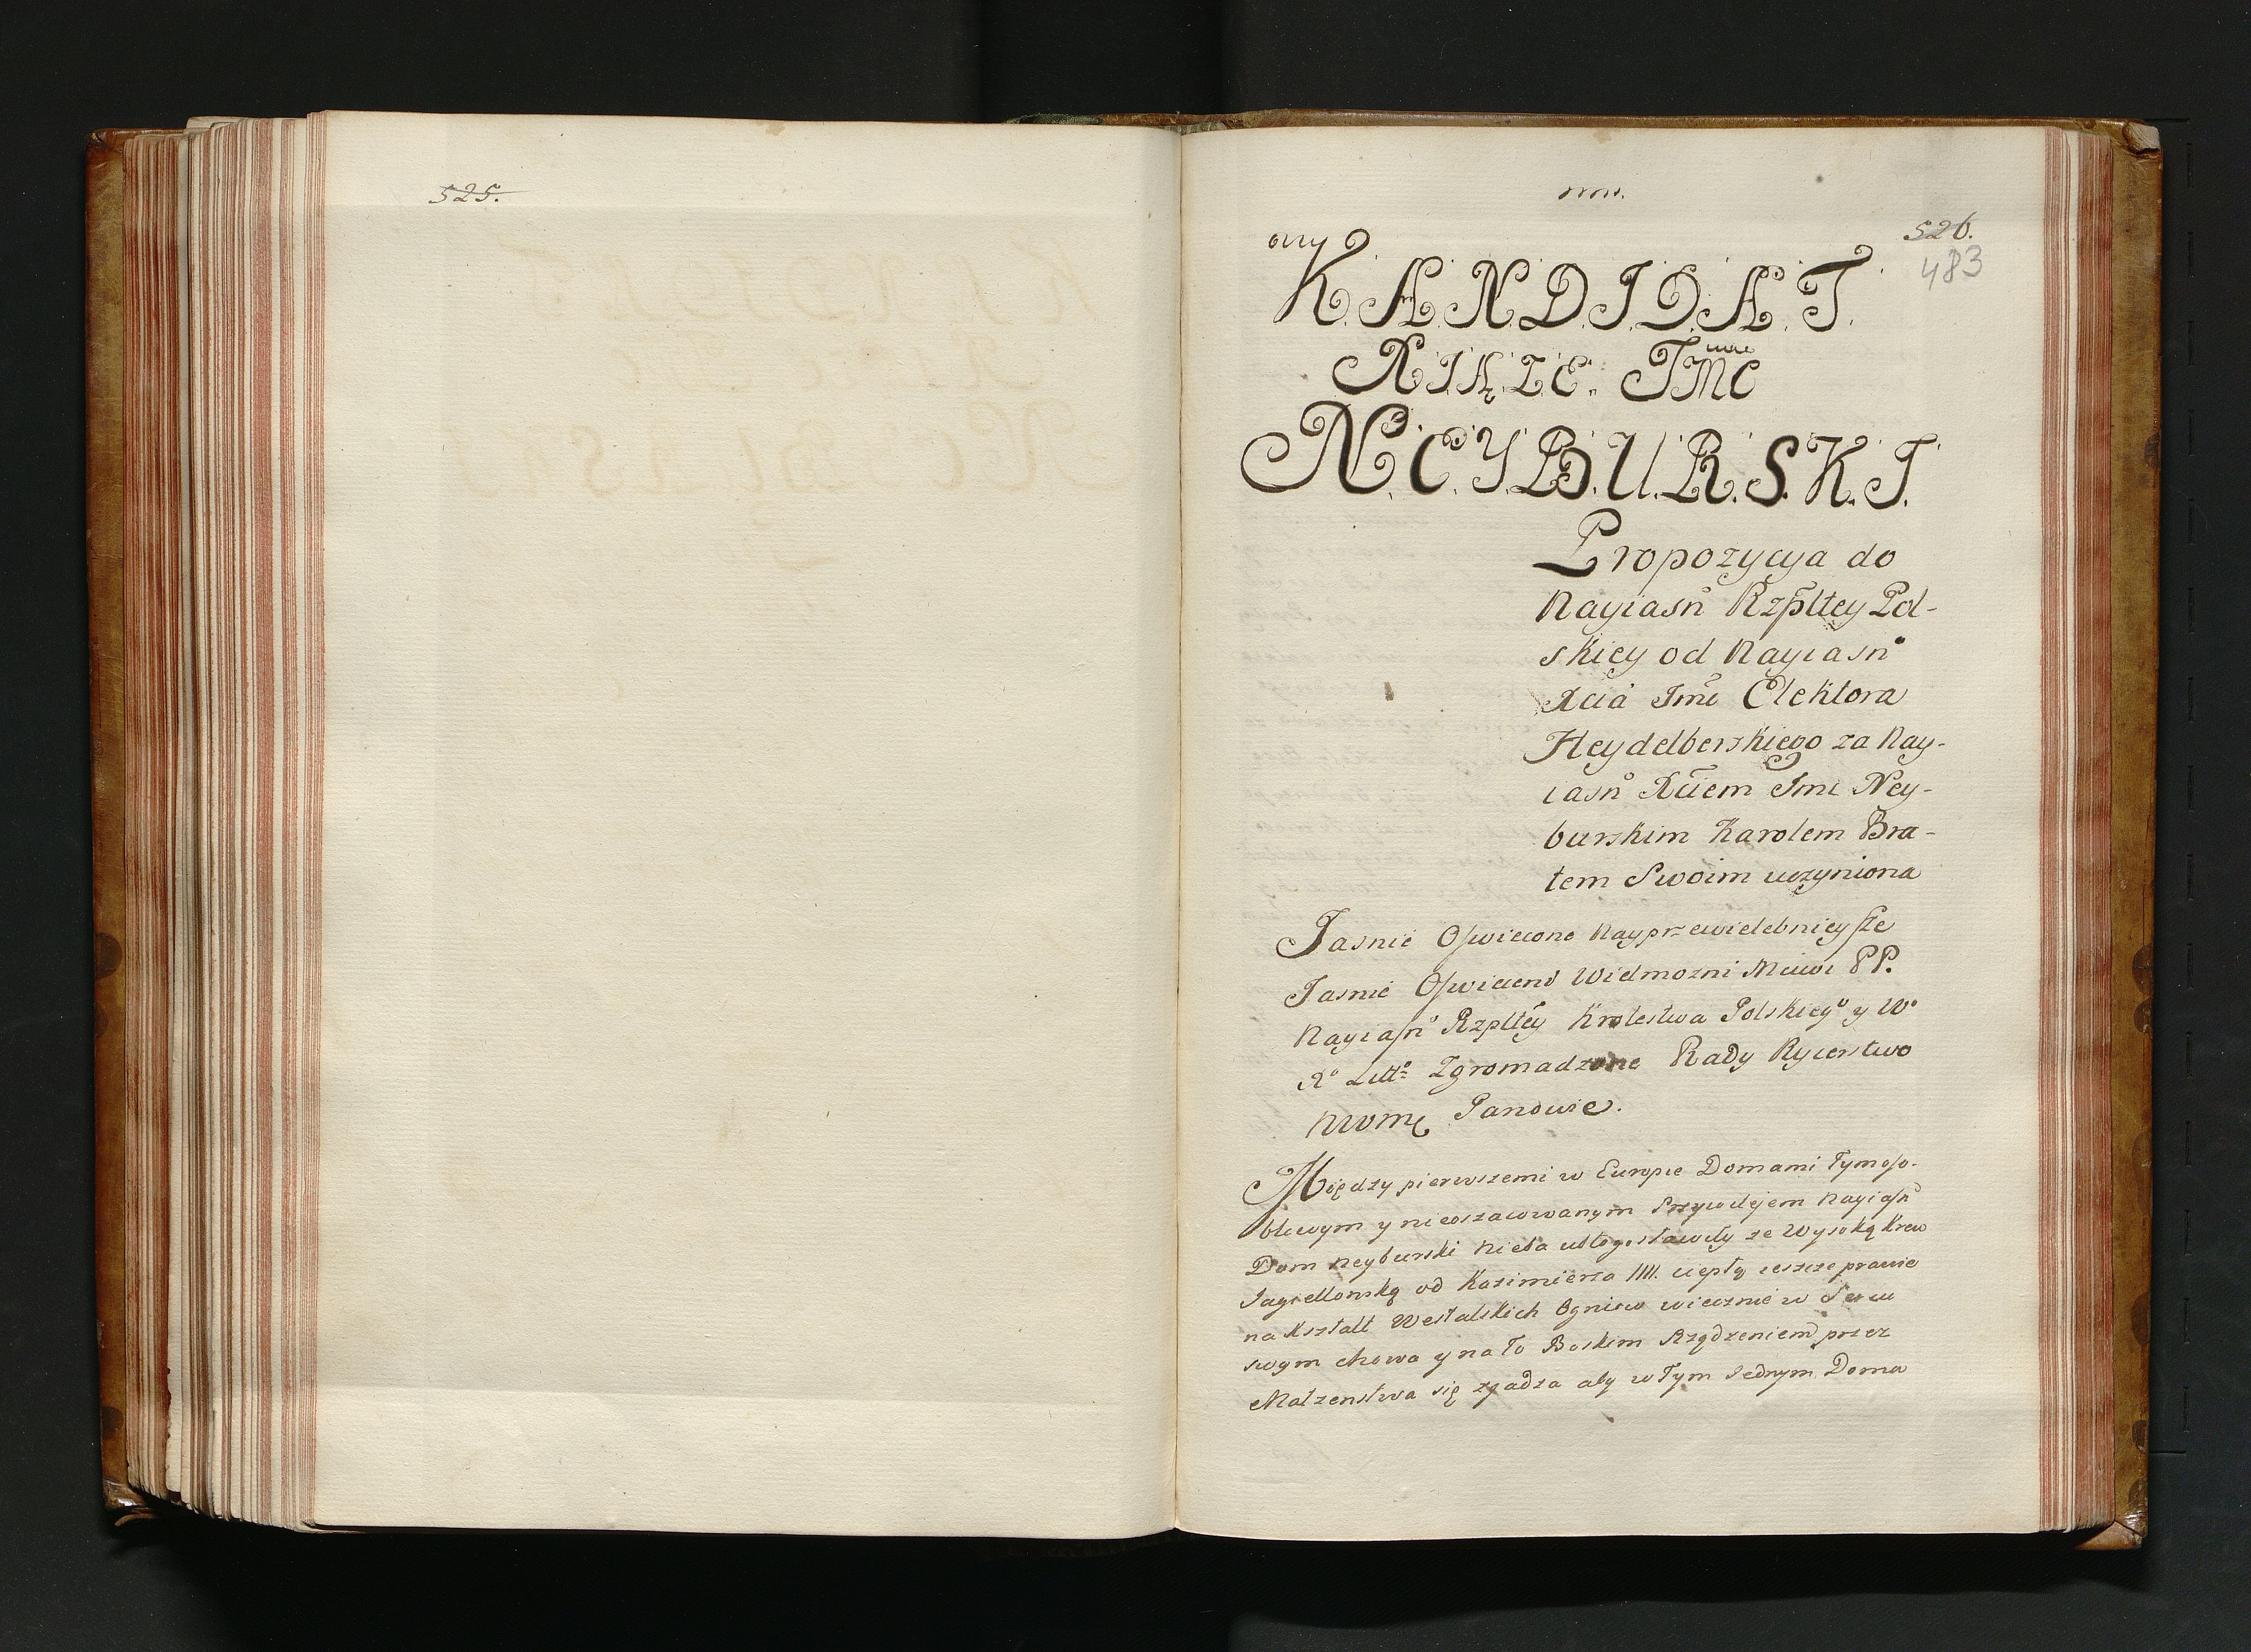 525.
526.
483
K.A.N.D.I.D.A.T.
X.I.Ą.Z.E. Jmć
N.E.Y.B.U.R.S.K.I.
Propozycya do
Nayiasn Rzpltey Pol-
skiey od Nayiasn
Xcia Jmć Elektora
Heydelberskiego za Nay-
iasn Xciem Jmć Ney-
burskim Karolem Bra-
tem Swoim uczyniona
Jasnie Oswiecone Nayprzewielebnieysze
Jasnie Oswieceno Wielmozni Mciwi PP.
Nayiasn Rzpltey Krolestwa Polskiego y Wo
Xo Litto Zgromadzone Rady Rycerstwo
Panowie.
Między pierwszemi w Europie Domami Tym oso-
bliwym y nieoszacowanym Przywilejem Nayiasn
Dom Neyburski Nieba ubłogosławiły ze Wysoką Krew
Jagiellonską od Kazimierza IIII. ciepłą ieszcze prawie
na Kształt Westalskich Ogniow wiecznie w Sercu
swym chowa y na To Boskim Rządzeniem przez
Małzenstwa się zgadza aby w Tym Jednym Domu